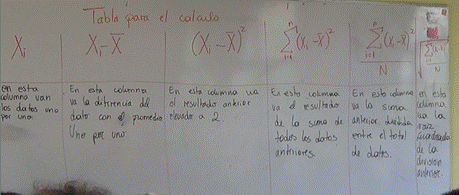 Tabla para el calculo
Xi
Xi - X̄
(Xi - X̄)²
n
Σ (Xi - X̄)²
i=1
n
Σ (Xi - X̄)²
i=1
N
√ n Σ (Xi - X̄)² i=1 N
en esta
columna van
los datos uno
por uno.
En esta columna
va la diferencia del
dato con el promedio
Uno por uno
En esta columna va
el resultado anterior
elevado a 2.
En esta columna
va el resultado
de la suma de
todos los datos
anteriores.
En esta columna
va la suma
anterior dividida
entre el total
de datos.
en esta
columna
va la
raíz
cuadrada
de la
division
anterior.